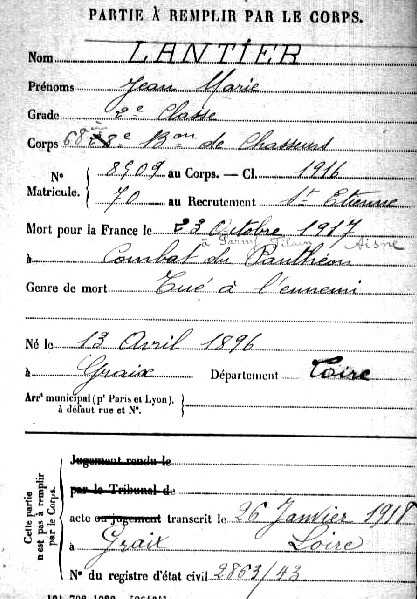 PARTIE À REMPLIR PAR LE CORPS.
Nom LANTIER
Prénoms Jean Marie
Grade 2e Classe
Corps 68e Bon de Chasseurs
N° Matricule. 8909 au Corps. — Cl. 1916
70 au Recrutement St Etienne
Mort pour la France le 23 Octobre 1917
à Aisne
à Combat du Panthéon
Genre de mort Tué à l'ennemi
Né le 13 Avril 1896
à Graix Département Loire
Arrt municipal (pr Paris et Lyon),
à défaut rue et N°.
Cette partie n'est pas à remplir par le Corps.
Jugement rendu le
par le Tribunal de
acte ou jugement transcrit le 26 Janvier 1918
à Graix Loire
N° du registre d'état civil 2863/43